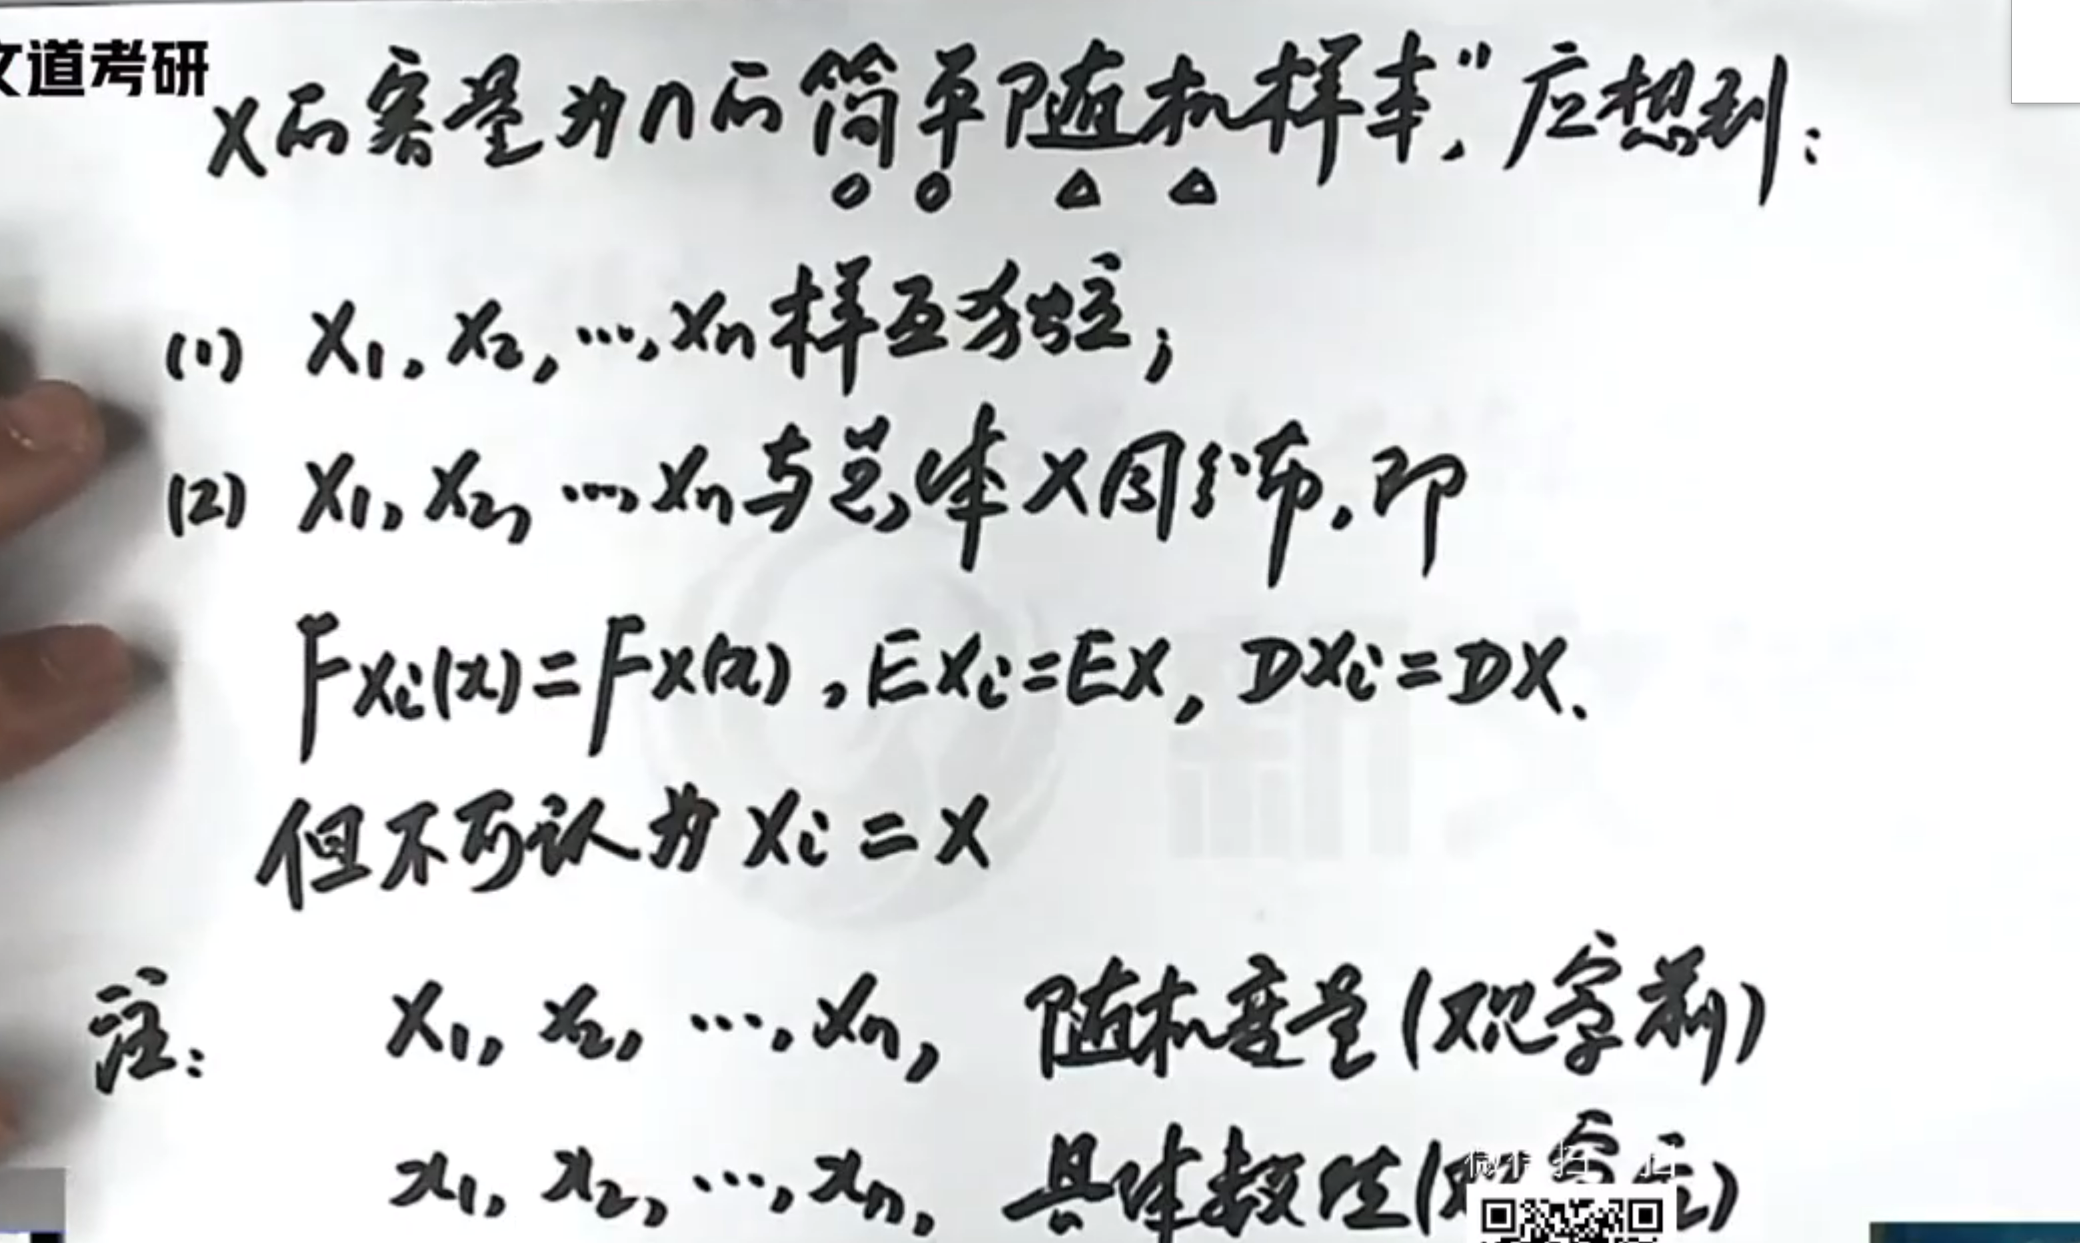 文道考研
X的容量为n的简单随机样本”,应想到:
(1) X₁, X₂, …, Xₙ样互独立;
(2) X₁, X₂, …, Xₙ与总体X同分布,即
F_{Xᵢ}(x)=F_X(x), EXᵢ=EX, DXᵢ=DX.
但不可认为Xᵢ=X
注: X₁, X₂, …, Xₙ, 随机变量(观察前)
x₁, x₂, …, xₙ, 具体数值(观察)
微信扫一扫